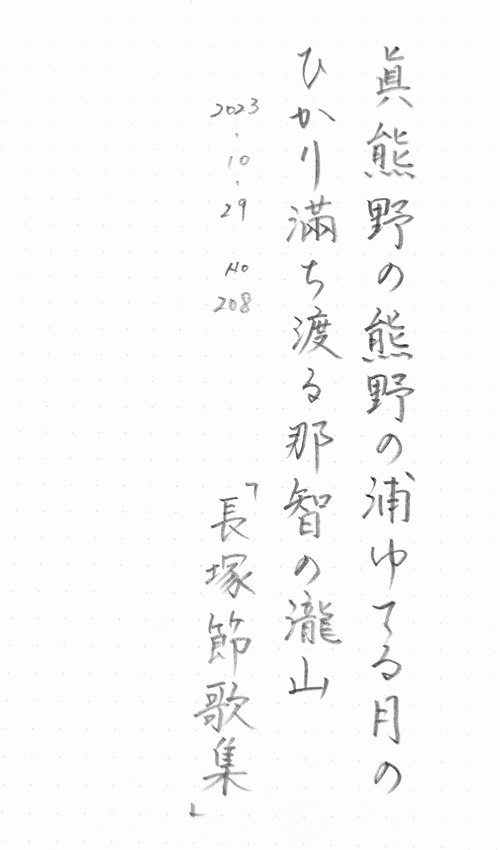 眞熊野の熊野の浦ゆてる月の
ひかり滿ち渡る那智の瀧山
「長塚節歌集」
2023.10.29 No 208